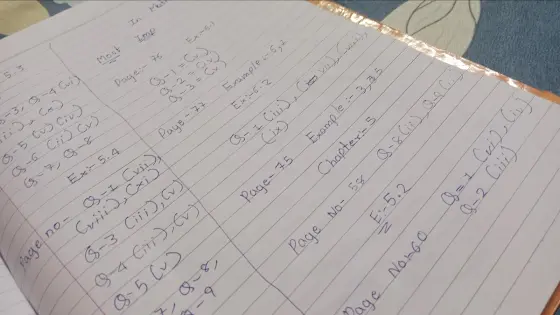 In Math
Most Imp
Page:- 76 Ex:-6.1
Q-1 = (v)
Q-2 = (v)
Q-3 = (v)
Page:- 77 Example:- 6,2
Ex:-6.2
Q-1 (iii),
(ix)
Page:- 75 Example:- 3,75
Chapter:- 5
Page No- 58 Q-8(ii)
Ex:-5.2
Page No:-60 Q=1 (vi),(ii)
Q-2 (iii)
-5.3
Q-3, Q-4 (vi)
(ii), (x)
Q-5 (v) (iv)
Q-6 (ii) (v)
Q-7, Q-8
Ex:-5.4
Page no- Q-1 (vii),
(viii), (xi)
Q-3 (iii), (v)
Q-4 (iii), (v)
Q-5 (v)
7, Q-8,
Q-9